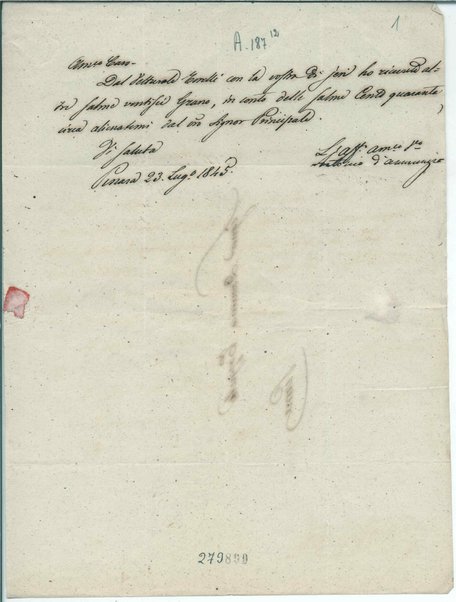 1
A. 187 12
Amico Caro
Dal Vetturale Torelli con la vostra di jeri ho ricevuto al-
tre salme ventisei Grano, in conto delle salme Cento quaranta
circa alienatemi del Signor Principale.
Vi saluta
Pescara 23. Lug.o 1845.
L'aff. amico v.ro
Antonio d'Annunzio
279899